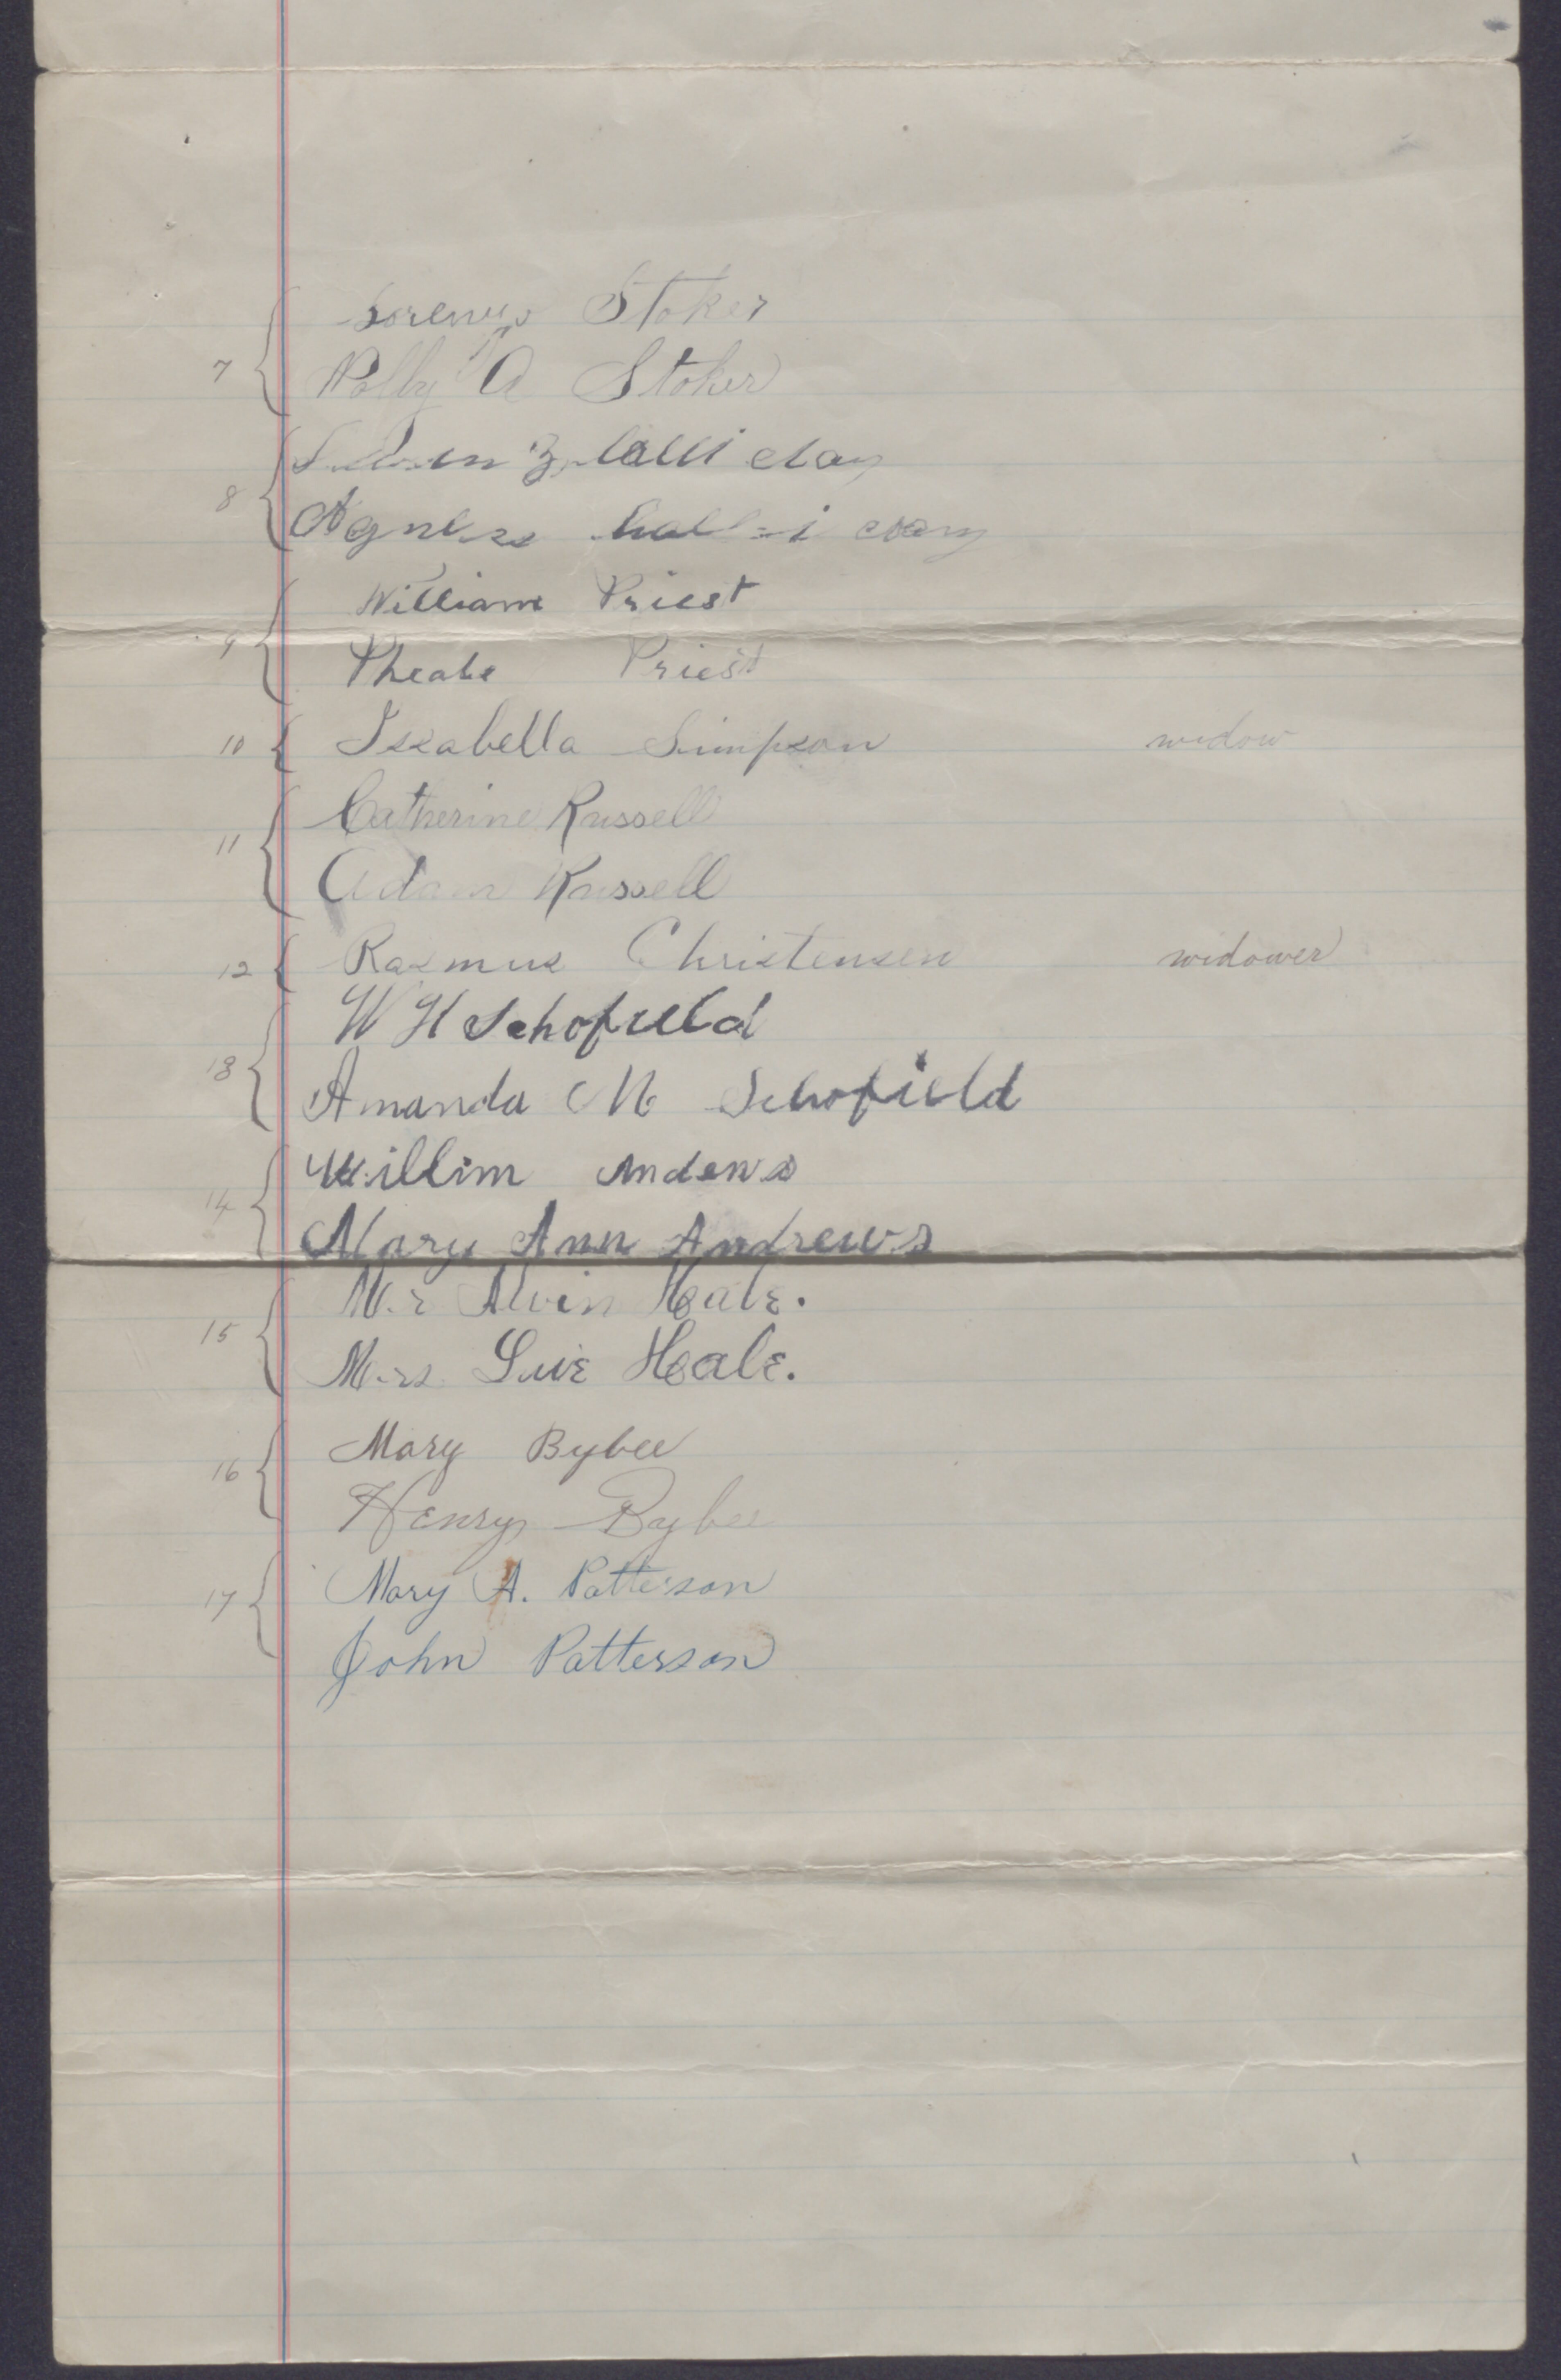 Lorenzo Stoker
7 Polly A Stoker
8 Agness
William Priest
9 Pheabe Priest
10 Issabella Simpson widow
Catherine Russell
11 Adam Russell
12 Rasmus Christensen widower
W H Schofield
13 Amanda M Schofield
Willim Andews
14 Mary Ann Andrews
Mr Alvin Heale.
15 Mrs. Luie Heale.
Mary Bybee
16 Henry Bybee
Mary A. Patterson
17 John Patterson